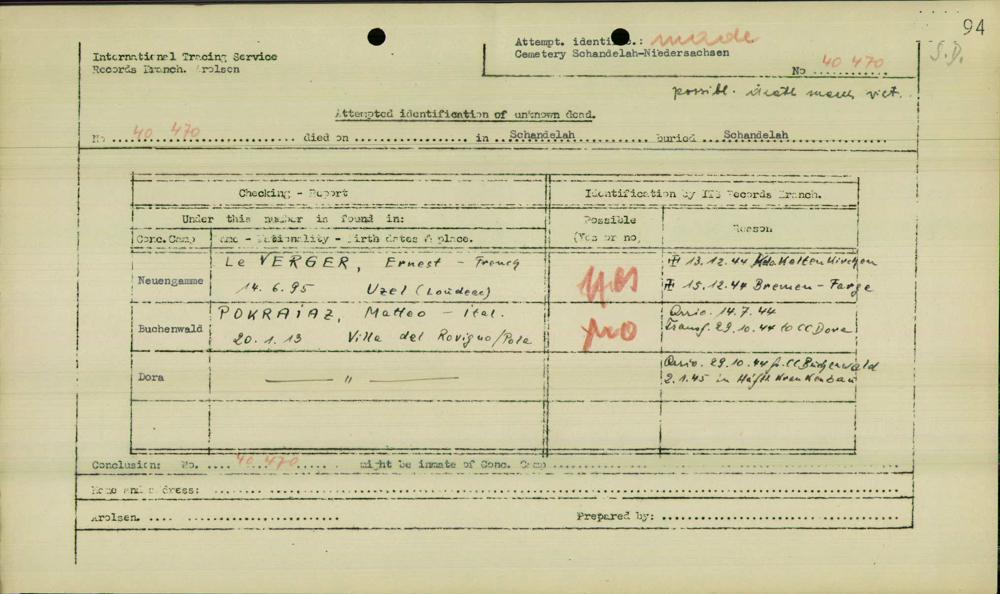 94
S.D.
International Tracing Service
Records Branch. Arolsen
Attempt. identific.: made
Cemetery Schandelah-Niedersachsen
No 40 470
possibl. death march vict.
Attempted identification of unknown dead.
No 40 470 died on .................. in Schandelah buried Schandelah
Checking - Report
Identification by ITS Records Branch.
Under this number is found in:
Possible (Yes or no)
Reason
Conc.Camp
Name - Nationality - Birth dates & place.
Neuengamme
Le VERGER, Ernest - French
14.6.95 Uzel (Loudeac)
yes
13.12.44 Kaltenkirchen
15.12.44 Bremen - Farge
Buchenwald
POKRAJAZ, Matteo - ital.
20.1.13 Villa del Rovigno/Pola
no
Arriv. 14.7.44
Transf. 29.10.44 to CC Dora
Dora
"
Arriv. 29.10.44 f. CC Buchenwald
2.1.45 in Häftl. Krankenbau
Conclusion: No. .... 40 470 ..... might be inmate of Conc. Camp
Name and address:
Arolsen.
Prepared by: